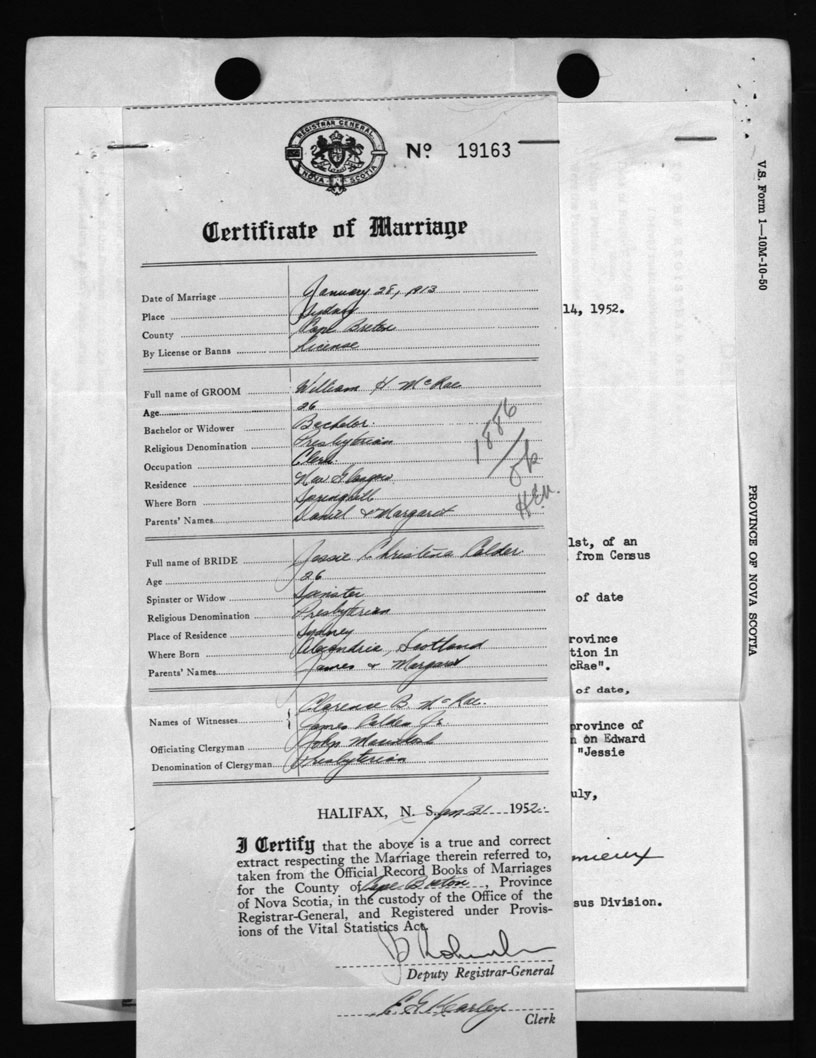 REGISTRAR GENERAL
NOVA SCOTIA
No. 19163
Certificate of Marriage
Date of Marriage January 28, 1913
Place Sydney
County Cape Breton
By License or Banns License
Full name of GROOM William H McRae
Age 26
Bachelor or Widower Bachelor.
Religious Denomination Presbyterian
Occupation Clerk
Residence New Glasgow
Where Born Springhill
Parents' Names Daniel & Margaret
1886
OK
Full name of BRIDE Jessie Christena Calder
Age 26
Spinster or Widow Spinster
Religious Denomination Presbyterian
Place of Residence Sydney
Where Born Alexandria, Scotland
Parents' Names James & Margaret
Names of Witnesses Clarence B. McRae.
James Calder Jr.
Officiating Clergyman John
Denomination of Clergyman Presbyterian
HALIFAX, N. S. Jan 21 1952
I Certify that the above is a true and correct
extract respecting the Marriage therein referred to,
taken from the Official Record Books of Marriages
for the County of Cape Breton, Province
of Nova Scotia, in the custody of the Office of the
Registrar-General, and Registered under Provis-
ions of the Vital Statistics Act.
Deputy Registrar-General
Clerk
V.S. Form 1—10M-10-50
PROVINCE OF NOVA SCOTIA
14, 1952.
1st, of an
from Census
of date
rovince
tion in
cRae".
of date,
province of
n on Edward
"Jessie
uly,
mieux
sus Division.